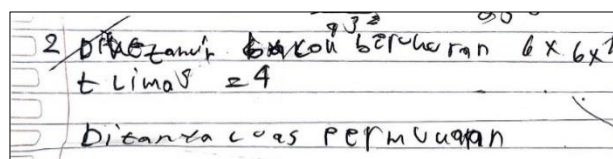 932
2 Diketahui balok berukuran 6 x 6 x
t Limas = 4
Ditanya Luas Permukaan